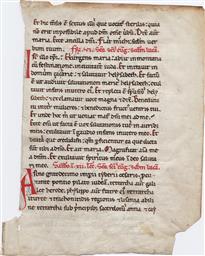 Et hic msis ē sextus illi que uocat̄ sterilis: quia
non erit inpossibile apud dm̄ omne uerbū. Dix̄ aūt
maria. Ecce ancilla dn̄i. Fiat michi scdm uer
bum tuum.
Exurgens maria abiit in montana
cum festinatione in ciuitatē iuda. Et intrauit in
domum zacharie & salutauit helysabeth. Et fac
tum est ut audiuit salutationē marie helysabeth: ex
ultauit infans in utero ei. Et repleta ē spū sc̄o
helysabeth & exclamauit uoce magna & dix̄. Benedicta
tu inter mulieres & benedictus fructus uentris tui.
Et unde hoc m ut ueniat mat dn̄i mei ad me.
exultauit in gaudio infans in utero meo. Et
beata que credidisti: qm̄ pficient̄ ea que dicta
sunt tibi a dn̄o. Et ait maria. Magnificat aīa me
a dn̄m. Et exultauit spiritus meus ī deo salutari
meo.
Anno quintodecimo imperii tyberii cesaris, pcu
rante pontio pilato iudeā, tetrarcha aūt gali
lee herode, philippo autē fratre ei tetrarcha
ituree & trachonitidis regionis & lisania abi
line tetrarcha sub principibus sacerdotum anna & cay